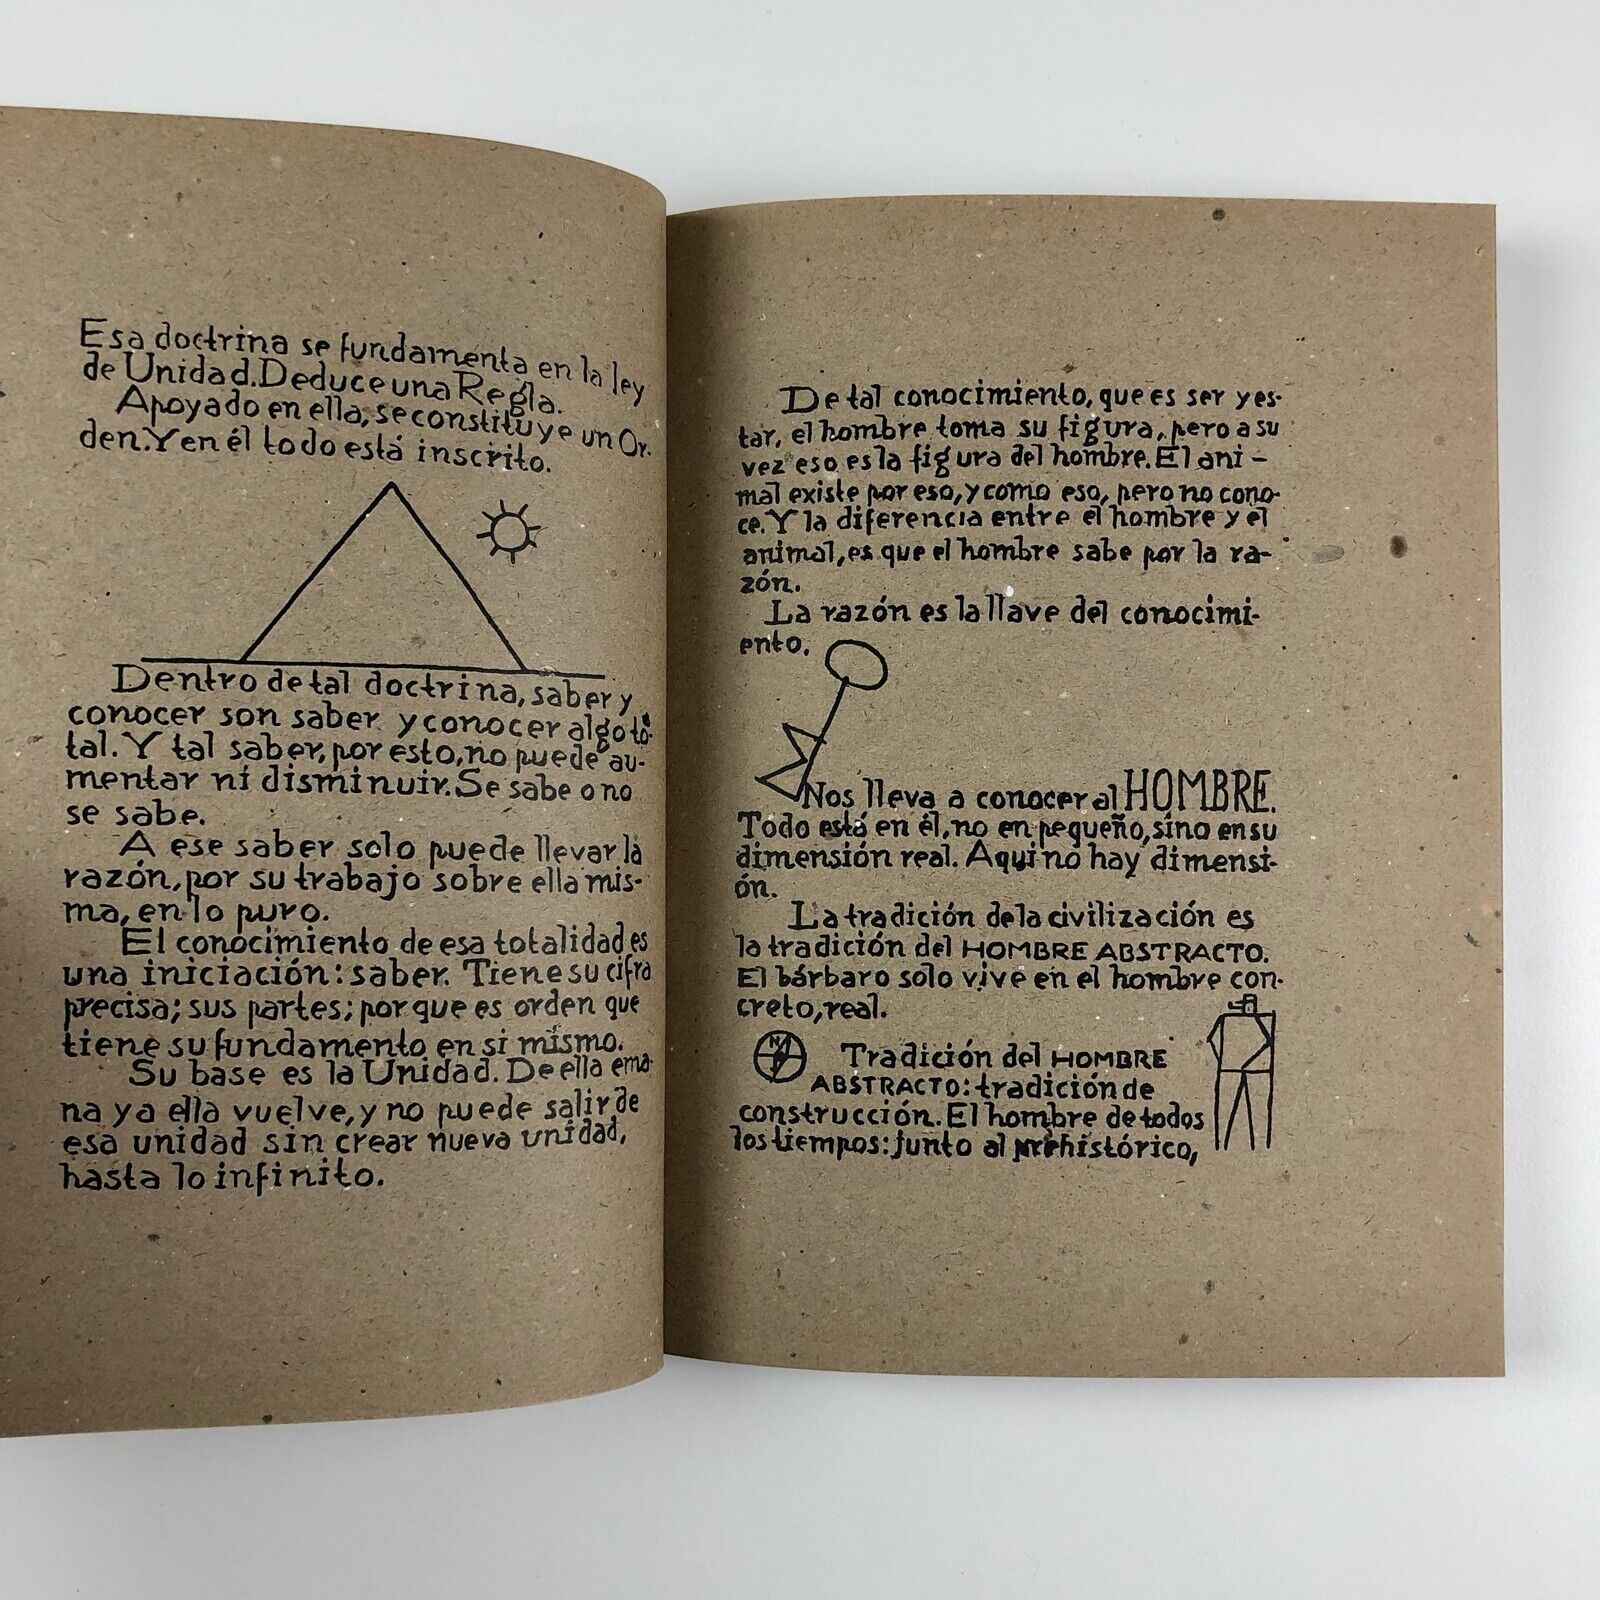 Esa doctrina se fundamenta en la ley
de Unidad. Deduce una Regla.
Apoyado en ella, se constituye un Or-
den. Y en él todo está inscrito.
Dentro de tal doctrina, saber y
conocer son saber y conocer algo to-
tal. Y tal saber, por esto, no puede au-
mentar ni disminuir. Se sabe o no
se sabe.
A ese saber solo puede llevar la
razón, por su trabajo sobre ella mis-
ma, en lo puro.
El conocimiento de esa totalidad es
una iniciación: saber. Tiene su cifra
precisa; sus partes; porque es orden que
tiene su fundamento en si mismo.
Su base es la Unidad. De ella ema-
na y a ella vuelve, y no puede salir de
esa unidad sin crear nueva unidad,
hasta lo infinito.
De tal conocimiento, que es ser y es-
tar, el hombre toma su figura, pero a su
vez eso es la figura del hombre. El ani-
mal existe por eso, y como eso, pero no cono-
ce. Y la diferencia entre el hombre y el
animal, es que el hombre sabe por la ra-
zón.
La razón es la llave del conocimi-
ento.
Nos lleva a conocer al HOMBRE.
Todo está en él, no en pequeño, sino en su
dimensión real. Aqui no hay dimensi-
ón.
La tradición de la civilización es
la tradición del HOMBRE ABSTRACTO.
El bárbaro solo vive en el hombre con-
creto, real.
N
Tradición del HOMBRE
ABSTRACTO: tradición de
construcción. El hombre de todos
los tiempos: junto al prehistórico,